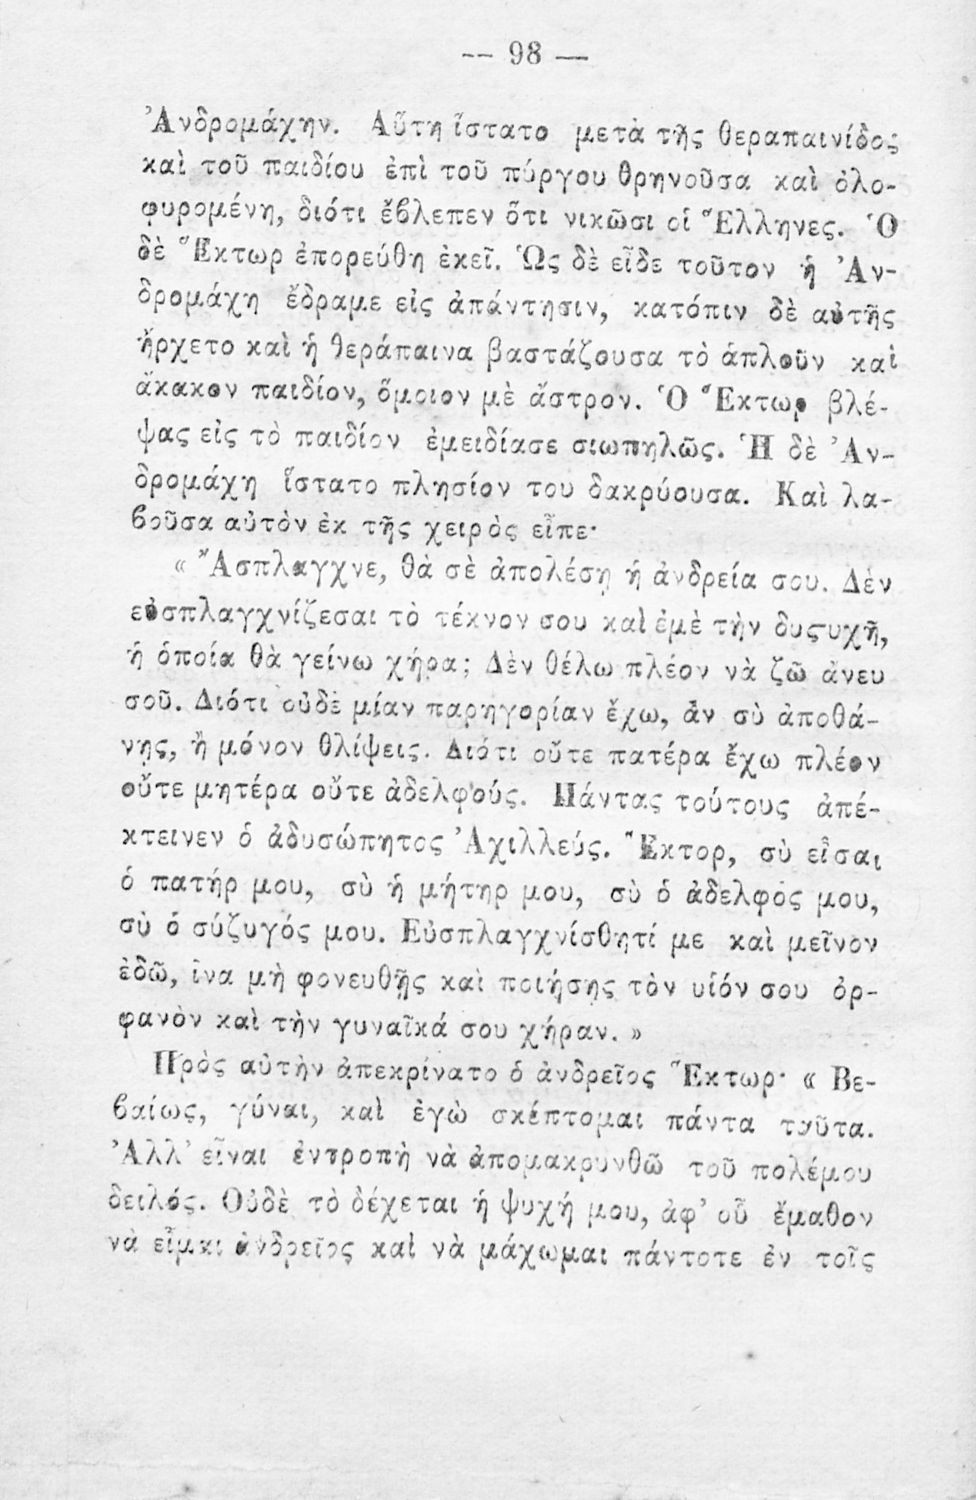 — 98 —
Ἀνδρομάχην. Αὕτη ἵστατο μετὰ τῆς θεραπαινίδος
καὶ τοῦ παιδίου ἐπὶ τοῦ πύργου θρηνοῦσα καὶ ὀλο-
φυρομένη, διότι ἔβλεπεν ὅτι νικῶσι οἱ Ἕλληνες. Ὁ
δὲ Ἕκτωρ ἐπορεύθη ἐκεῖ. Ὡς δὲ εἶδε τοῦτον ἡ Ἀν-
δρομάχη ἔδραμε εἰς ἀπάντησιν, κατόπιν δὲ αὐτῆς
ἤρχετο καὶ ἡ θεράπαινα βαστάζουσα τὸ ἁπλοῦν καὶ
ἄκακον παιδίον, ὅμοιον μὲ ἄστρον. Ὁ Ἕκτωρ βλέ-
ψας εἰς τὸ παιδίον ἐμειδίασε σιωπηλῶς. Ἡ δὲ Ἀν-
δρομάχη ἵστατο πλησίον του δακρύουσα. Καὶ λα-
βοῦσα αὐτὸν ἐκ τῆς χειρὸς εἶπε·
« Ἄσπλαγχνε, θὰ σὲ ἀπολέσῃ ἡ ἀνδρεία σου. Δὲν
εὐσπλαγχνίζεσαι τὸ τέκνον σου καὶ ἐμὲ τὴν δυστυχῆ,
ἡ ὁποία θὰ γείνω χήρα; Δὲν θέλω πλέον νὰ ζῶ ἄνευ
σοῦ. Διότι οὐδὲ μίαν παρηγορίαν ἔχω, ἂν σὺ ἀποθά-
νῃς, ἢ μόνον θλίψεις. Διότι οὔτε πατέρα ἔχω πλέον
οὔτε μητέρα οὔτε ἀδελφούς. Πάντας τούτους ἀπέ-
κτεινεν ὁ ἀδυσώπητος Ἀχιλλεύς. Ἕκτορ, σὺ εἶσαι
ὁ πατήρ μου, σὺ ἡ μήτηρ μου, σὺ ὁ ἀδελφὸς μου,
σὺ ὁ σύζυγός μου. Εὐσπλαγχνίσθητί με καὶ μεῖνον
ἐδῶ, ἵνα μὴ φονευθῇς καὶ ποιήσῃς τὸν υἱόν σου ὀρ-
φανὸν καὶ τὴν γυναῖκά σου χήραν. »
Πρὸς αὐτὴν ἀπεκρίνατο ὁ ἀνδρεῖος Ἕκτωρ· « Βε-
βαίως, γύναι, καὶ ἐγὼ σκέπτομαι πάντα ταῦτα.
Ἀλλ’ εἶναι ἐντροπὴ νὰ ἀπομακρυνθῶ τοῦ πολέμου
δειλός. Οὐδὲ τὸ δέχεται ἡ ψυχή μου, ἀφ’ οὗ ἔμαθον
νὰ εἶμαι ἀνδρεῖος καὶ νὰ μάχωμαι πάντοτε ἐν τοῖς